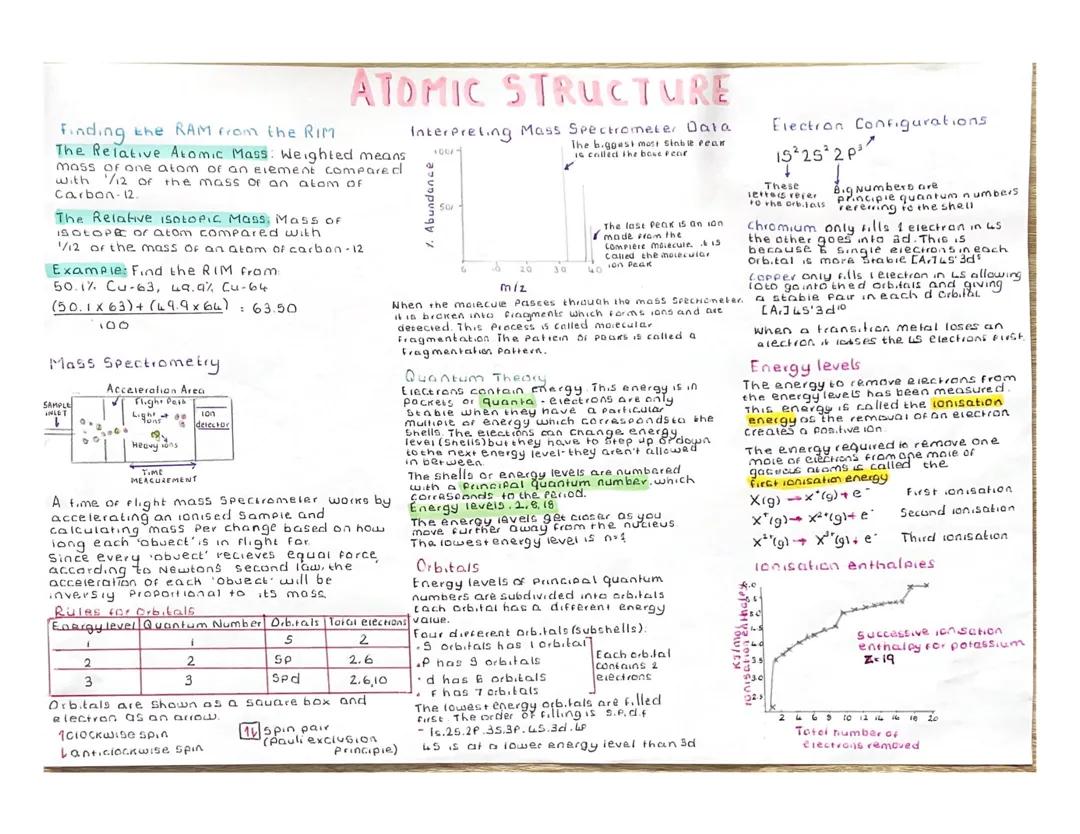 ATOMIC STRUCTURE
Finding the RAM from the RIM
The Relative Atomic Mass: Weighted means
mass of one atom of an element compared
with 1/12 of the mass of an atom of
Carbon-12.
The Relative isotopic Mass: Mass of
isotope or atom compared with
1/12 of the mass of an atom of carbon-12
Example: Find the RIM from
50.1% Cu-63, 49.9% Cu-64
(50.1x63)+(49.9x64) : 63.50
100
Mass Spectrometry
Acceleration Area
SAMPLE
INLET
Flight Path
Light ions
Heavy ions
ion
detector
TIME
MEASUREMENT
A time of flight mass spectrometer works by
accelerating an ionised sample and
calculating mass per change based on how
long each 'object' is in flight for
Since every 'object' recieves equal force
according to Newtons second law, the
acceleration of each 'object' will be
inversly proportional to its mass
Rules for orbitals
Energy level Quantum Number Orbitals Total electrons
1 1 S 2
2 2 SP 2,6
3 3 SPd 2,6,10
Orbitals are shown as a square box and
electron as an arrow.
↿clockwise spin
⇂anticlockwise spin
↿⇂ spin pair
(pauli exclusion
Principle)
Interpreting Mass Spectrometer Data
The biggest most stable peak
is called the base peak
% Abundance
100
50
0 10 20 30 40
m/z
The last peak is an ion
made from the
complete molecule. it is
called the molecular
ion peak
When the molecule passes through the mass spectrometer
it is broken into fragments which forms ions and are
detected. This process is called molecular
fragmentation The pattern of peaks is called a
fragmentation pattern.
Quantum Theory
Electrons contain energy. This energy is in
pockets or quanta - electrons are only
stable when they have a particular
multiple of energy which corresponds to the
shells. The electrons can change energy
level (shells) but they have to step up or down
to the next energy level - they aren't allowed
in between.
The shells or energy levels are numbered
with a principal quantum number, which
corresponds to the period.
Energy levels. 2,8,18
The energy levels get closer as you
move further away from the nucleus
The lowest energy level is n=1
Orbitals
Energy levels of principal quantum
numbers are subdivided into orbitals
Each orbital has a different energy
value.
Four different orbitals (subshells):
.S orbitals has 1 orbital
.P has 3 orbitals
.d has 5 orbitals
.F has 7 orbitals
Each orbital
contains 2
electrons
The lowest energy orbitals are filled
first. The order of filling is s,p,d,f
- 1s.2s.2p.3s.3p.4s.3d.4p
4s is at a lower energy level than 3d
Electron Configurations
1S²2S²2P³
These
letters refer
to the orbitals
Big Numbers are
principle quantum numbers
referring to the shell
Chromium only fills 1 electron in 4s
the other goes into 3d. This is
because 6 single electrons in each
Orbital is more stable [Ar]4s'3d⁵
Copper only fills 1 electron in 4s allowing
10 to go into the d orbitals and giving
a stable pair in each d orbital
[Ar]4s'3d¹⁰
When a transition metal loses an
electron it losses the 4s electrons first.
Energy levels
The energy to remove electrons from
the energy levels has been measured.
This energy is called the ionisation
energy as the removal of an electron
creates a positive ion.
The energy required to remove one
mole of electrons from one mole of
gaseous atoms is called the
first ionisation energy
X(g) → x⁺(g)+e⁻ First ionisation
X⁺(g) → x²⁺(g)+e⁻ Second ionisation
X²⁺(g) → X³⁺(g)+e⁻ Third ionisation
Ionisation enthalpies
KJ/mol
ionisation enthalpies
Successive ionisation
enthalpy for potassium
Z=19
2 4 6 8 10 12 14 16 18 20
Total number of
electrons removed